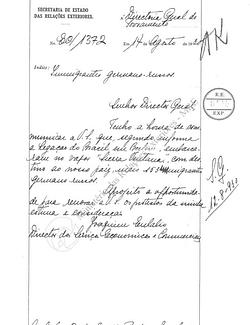 SECRETARIA DE ESTADO
DAS RELAÇÕES EXTERIORES.
Directoria Geral do
Povoamento
N. 29/1372
Em 14 Agosto 192
Indice: Immigrantes germano-russos
Senhor Director Geral
Tenho a honra de com
municar a V. S. que, segundo informa
a Legação do Brasil em Berlim, embarca
ram no vapor Sierra Ventana, com des
tino ao nosso paiz, immigrantes
germano-russos.
Aproveito a opportunida
de para renovar a V. S. os protestos da minha
estima e consideração
Joaquim Eulalio
Director dos Serviços Economicos e Commerciaes